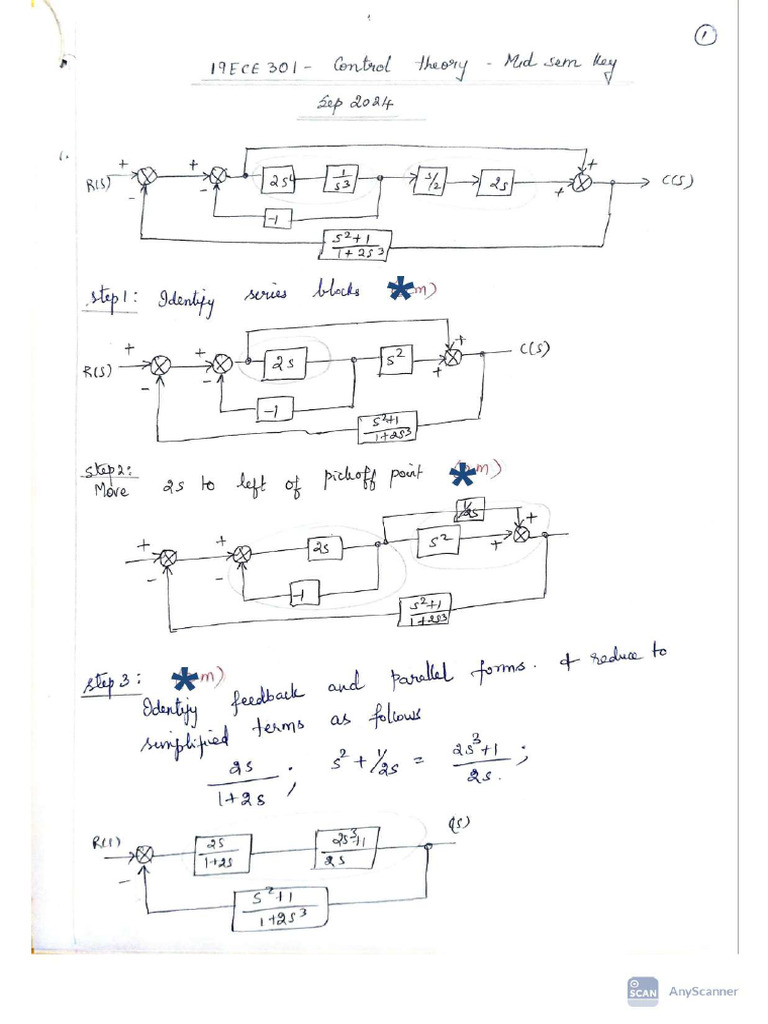 1
19ECE301 - Control theory - Mid sem key
Sep 2024
1.
R(S) + - + - 2s⁴ 1/s³ s/2 2s + + C(S)
-1
s²+1/1+2s³
Step1: Identify series blocks m)
R(S) + - + - 2s s² + + C(S)
-1
s²+1/1+2s³
Step2: Move 2s to left of pickoff point m)
1/2s
+ - + - 2s s² + +
-1
s²+1/1+2s³
Step 3: m)
Identify feedback and parallel forms. & reduce to
simplified terms as follows
2s/1+2s ; s² + 1/2s = 2s³+1/2s. ;
R(S) - 2s/1+2s 2s³+1/2s (S)
s²+1/1+2s³
SCAN AnyScanner